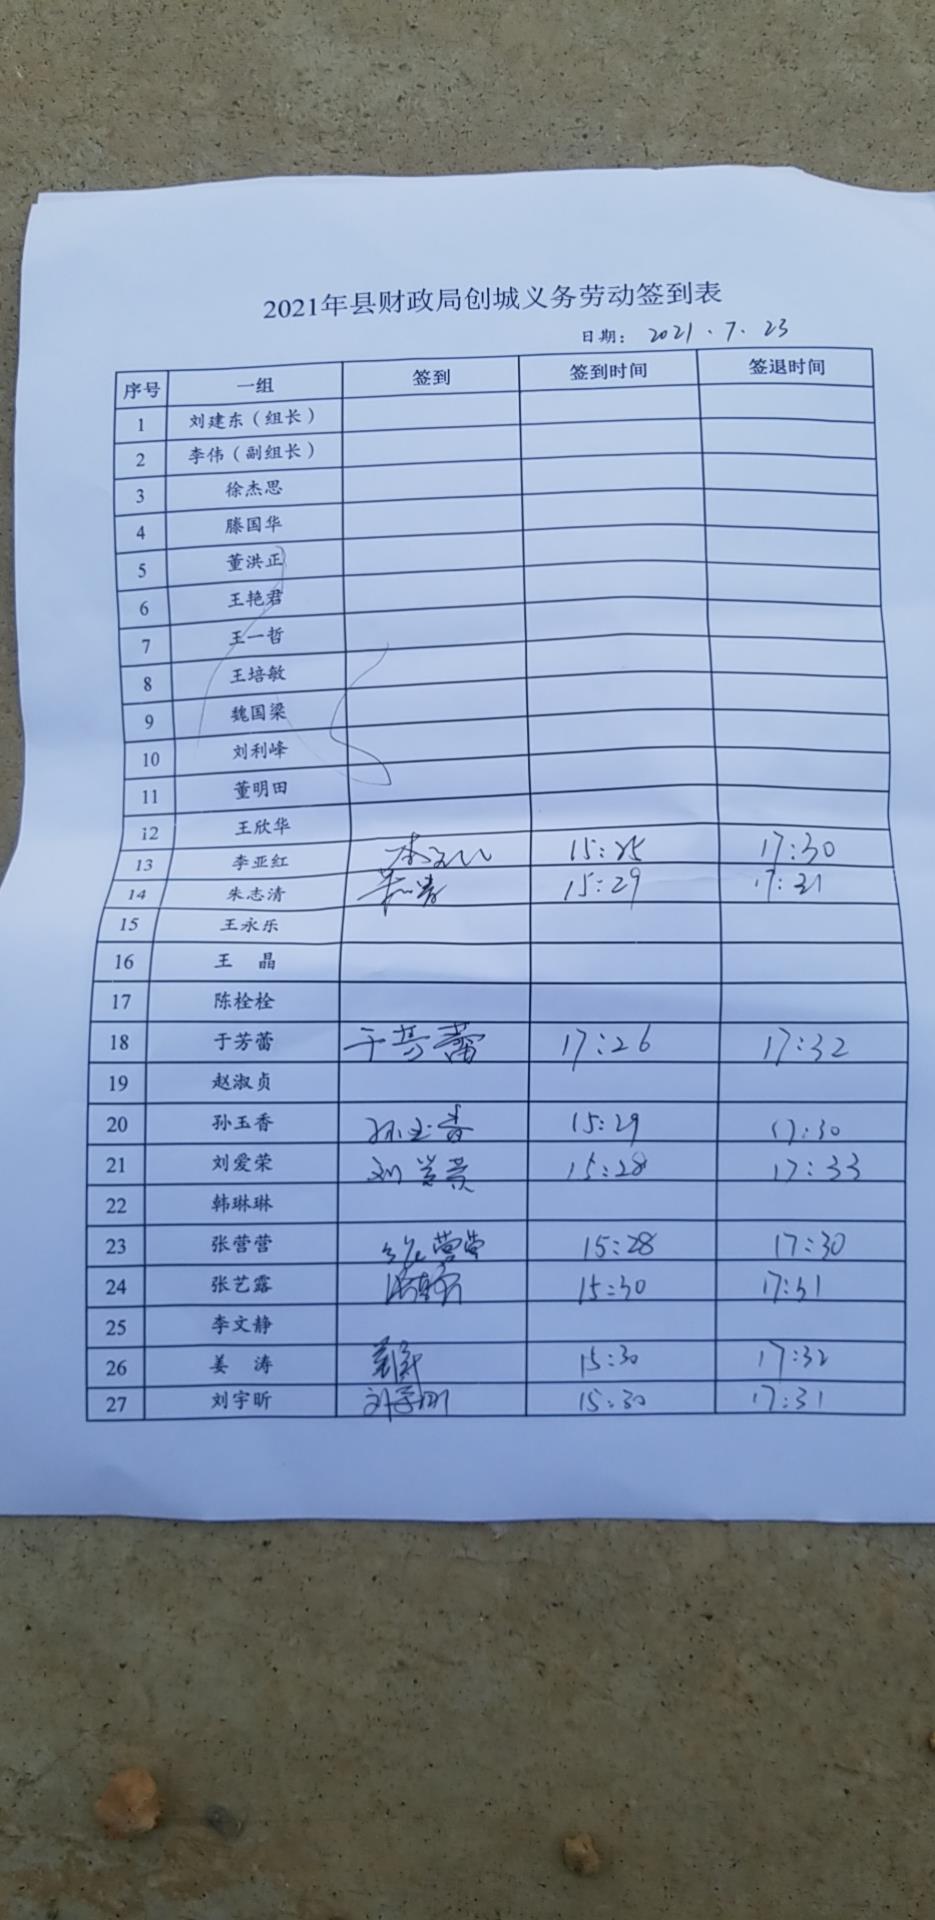 2021年县财政局创城义务劳动签到表
日期： 2021.7.23
序号 一组 签到 签到时间 签退时间
1 刘建东（组长）
2 李伟（副组长）
3 徐杰思
4 滕国华
5 董洪正
6 王艳君
7 王一哲
8 王培敏
9 魏国梁
10 刘利峰
11 董明田
12 王欣华
13 李亚红 15:25 17:30
14 朱志清 15:29 17:31
15 王永乐
16 王 晶
17 陈栓栓
18 于芳蕾 于芳蕾 17:26 17:32
19 赵淑贞
20 孙玉香 孙玉香 15:29 17:30
21 刘爱荣 15:28 17:33
22 韩琳琳
23 张营营 张营营 15:28 17:30
24 张艺露 15:30 17:31
25 李文静
26 姜 涛 15:30 17:32
27 刘宇昕 15:30 17:31